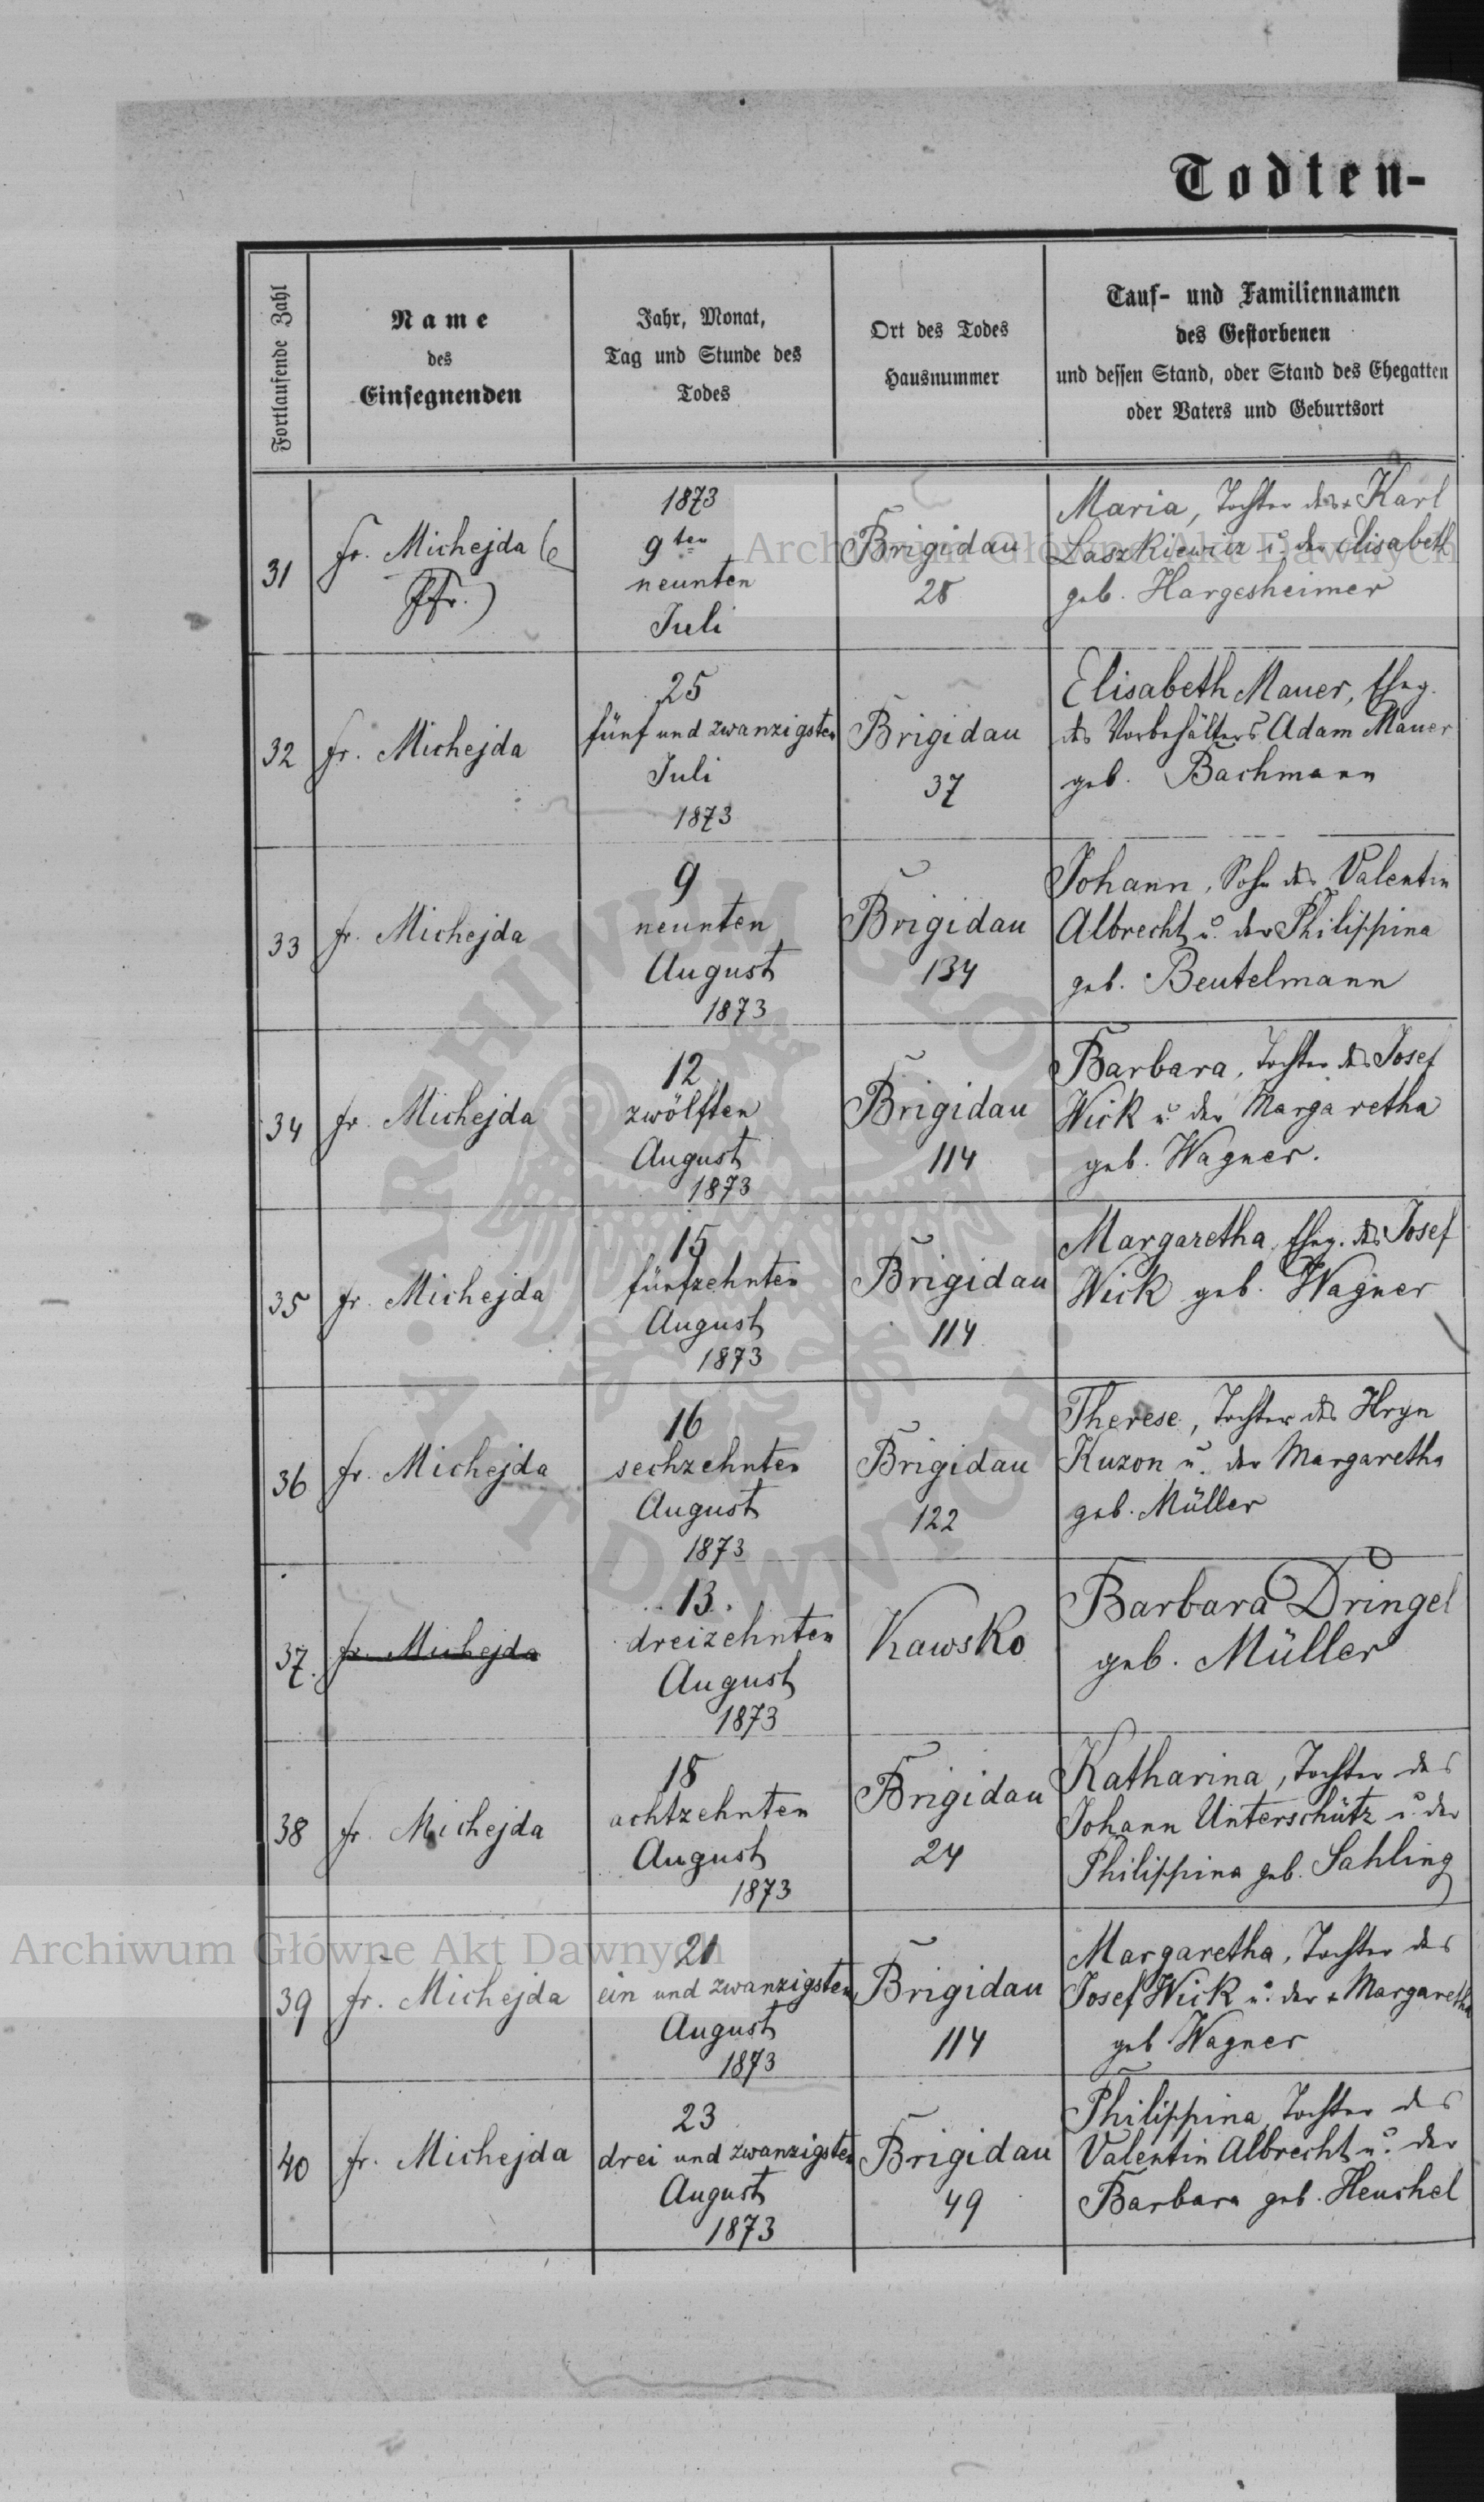 Todten-
Fortlaufende Zahl
Name
des
Einsegnenden
Jahr, Monat,
Tag und Stunde des
Todes
Ort des Todes
Hausnummer
Tauf- und Familiennamen
des Gestorbenen
und dessen Stand, oder Stand des Ehegatten
oder Vaters und Geburtsort
31
fr. Michejda
Pfr.)
1873
9ten
neunten
Juli
Brigidau
28
Maria, Tochter des + Karl
Laszkiewicz u. der Elisabeth
geb. Hargesheimer
32
fr. Michejda
25
fünf und zwanzigsten
Juli
1873
Brigidau
37
Elisabeth Mauer, Eheg.
des Vorbehälters Adam Mauer
geb. Bachmann
33
fr. Michejda
9
neunten
August
1873
Brigidau
134
Johann, Sohn des Valentin
Albrecht u. der Philippina
geb. Beutelmann
34
fr. Michejda
12
zwölften
August
1873
Brigidau
114
Barbara, Tochter des Josef
Wick u. der Margaretha
geb. Wagner.
35
fr. Michejda
15
fünfzehnten
August
1873
Brigidau
114
Margaretha, Eheg. des Josef
Wick geb. Wagner
36
fr. Michejda
16
sechzehnten
August
1873
Brigidau
122
Therese, Tochter des Hryn
Kuzon u. der Margaretha
geb. Müller
37.
fr. Michejda
13.
dreizehnten
August
1873
Kawsko
Barbara Dringel
geb. Müller
38
fr. Michejda
18
achtzehnten
August
1873
Brigidau
24
Katharina, Tochter des
Johann Unterschütz u. der
Philippina geb. Sahling
39
fr. Michejda
21
ein und zwanzigsten
August
1873
Brigidau
114
Margaretha, Tochter des
Josef Wick u. der + Margaretha
geb Wagner
40
fr. Michejda
23
drei und zwanzigsten
August
1873
Brigidau
49
Philippina, Tochter des
Valentin Albrecht u. der
Barbara geb. Heuchel
Archiwum Główne Akt Dawnych
Archiwum Główne Akt Dawnych
ARCHIWUM GŁÓWNE AKT DAWNYCH